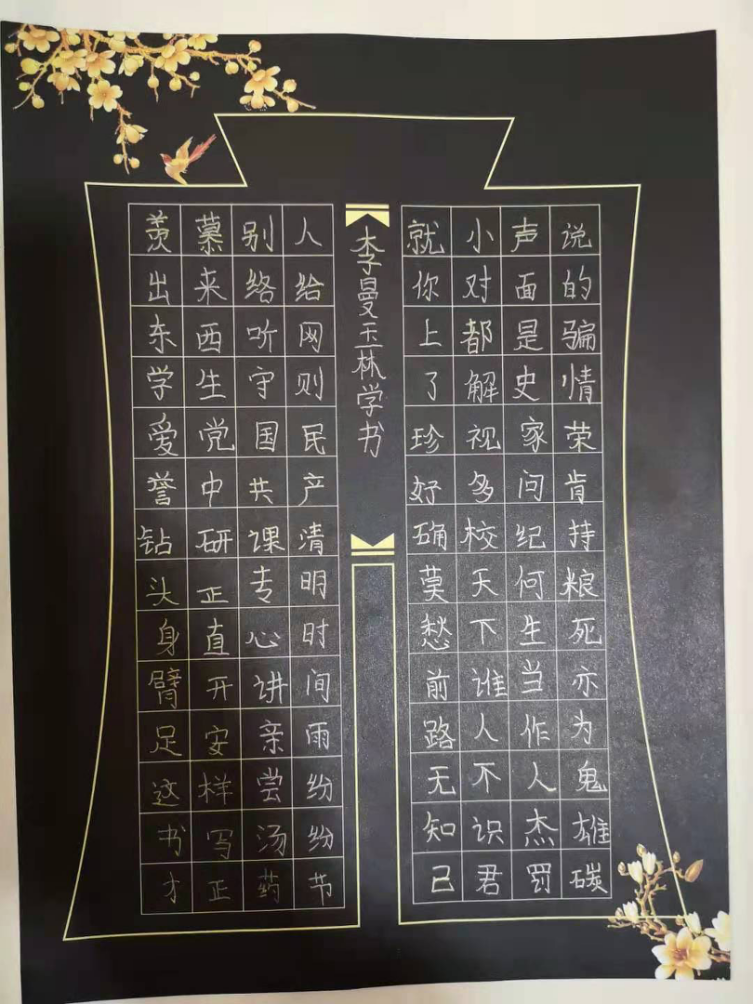 羡慕别人
出来络给
东西听网
学生守则
爱党国民
誉中共产
钻研课清
头正专明
身直心时
臂开讲间
足安亲雨
这样尝纷
书写汤纷
才正药节
李曼玉林学书
就小声说
你对面的
上都是骗
了解史情
珍视家荣
好多问肯
确校纪持
莫天何粮
愁下生死
前谁当亦
路人作为
无不人鬼
知识杰雄
己君罚碳